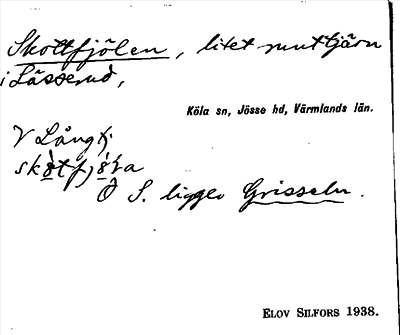 Skottfjölen, litet runt tjärn
i Lässerud,
Köla sn, Jösse hd, Värmlands län.
V Långtj.
skòtfjö̀ra
Ö S. ligger Grisseln.
ELOV SILFORS 1938.